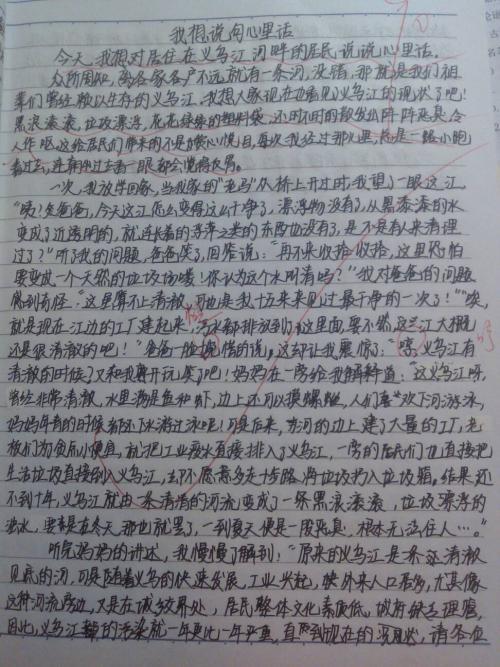 我想说句心里话
今天,我想对居住在义乌江河畔的居民说说心里话。
众所周知,离各家各户不远就有一条河,没错,那就是我们祖
辈们曾经赖以生存的义乌江,我想大家现在也看见义乌江的现状了吧!
黑浪滚滚,垃圾漂浮,花花绿绿的塑料袋,还时不时的散发出阵阵恶臭,令
人作呕,这给居民们带来的不是赏心悦目,每次我经过那儿里,总是一路小跑
着过去,连朝那过去看一眼都会觉得反胃。
一次,我放学回家,当我家的“老马”从桥上开过时,我望了一眼这江,
“咦?爸爸爸,今天这江怎么变得这么干净了,漂浮物没有了,从黑漆漆的水
变成了近透明的,就连长着的浮萍之类的东西也没有了,是不是有人来清理
过了?”听了我的问题,爸爸笑了,回答说:“再不来收拾收拾,这里恐怕
要变成一个天然的垃圾场喽!你认为这个水叫清吗?”我对爸爸的问题
感到奇怪:“这里算不上清澈,可也是我十五年来见过最干净的一次了!”“唉,
就是现在江边的工厂建起来,污水都排放到了这里面,要不然,这江大概
还是很清澈的吧!”爸爸一脸惋惜的说,这却让我震惊了:“噫,义乌江有
清澈的时候?又和我寻开玩笑了吧!妈妈在一旁给我解释道:“这义乌江呀,
曾经非常清澈,水里满是鱼和虾,边上还可以摸螺蛳,人们喜欢下河游泳,
妈妈年青的时候都还下水游过泳吧!可是后来,旁河的边上建了大量的工厂,老
板们为贪所小便宜,就把工业废水直接排入了义乌江,一旁的居民们也直接把
生活垃圾直接倒入义乌江,却不愿意多走十步路将垃圾扔入垃圾箱。结果还
不到十年,义乌江就由一条清清的河流变成了一条黑浪滚滚,垃圾漂浮的
浊水,要都是冬天,那也就罢了,一到夏天便是一股恶臭,根本无法住人…。”
听完妈妈的讲述,我慢慢了解到:“原来的义乌江是条清澈
见底的河,可是随着义乌的快速发展,工业兴起,使外来人口居多,尤其像
这种河流旁边,又是在城乡交界处,居民整体文化素质低,政府缺乏理睬,
因此,义乌江的污染就一年更比一年严重,直到现在的河现状,请各位